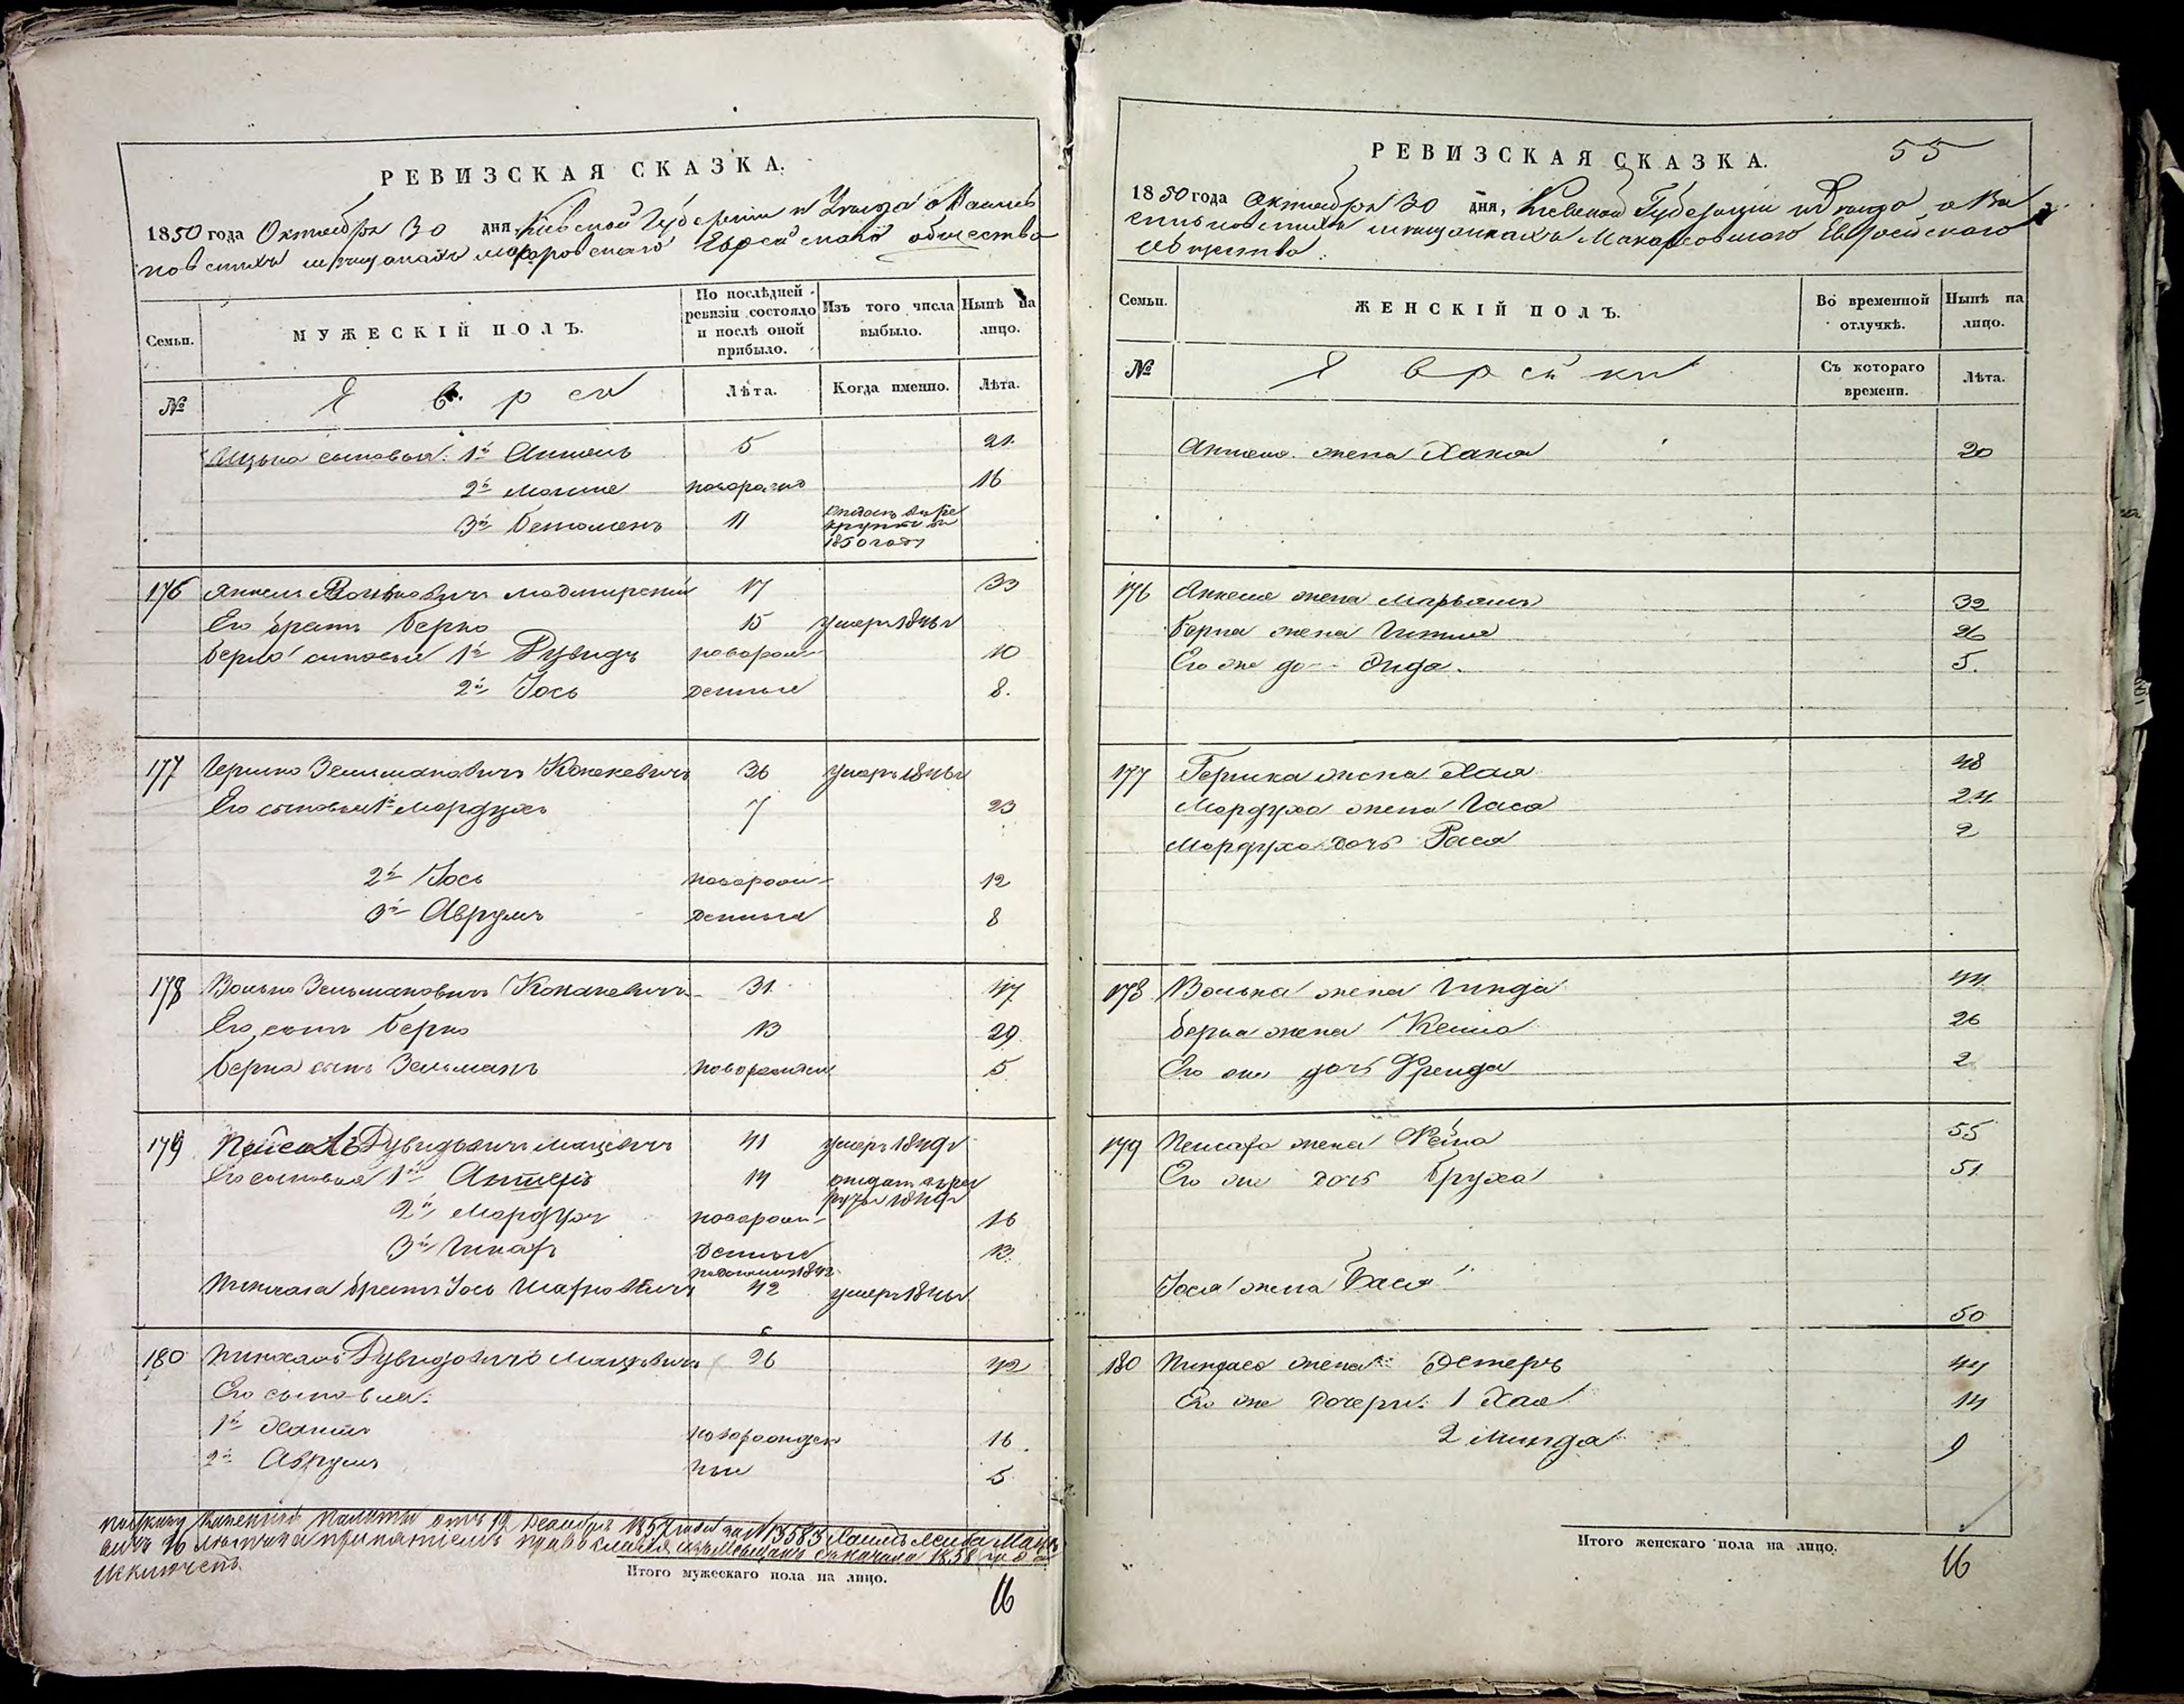 РЕВИЗСКАЯ СКАЗКА.
1850 года Октября 30 дня, Киевской Губернии и Уезда о Василь
ковскихъ мещанахъ Макаровскаго Еврейскаго общества
Семьи.
МУЖЕСКІЙ ПОЛЪ.
По послѣдней ревизіи состояло и послѣ оной прибыло.
Изъ того числа выбыло.
Нынѣ на лицо.
№
Евреи
Лѣта.
Когда именно.
Лѣта.
Ицька сыновья: 1й Аншель 5 21
2й Мошке новорожд 16
3й 11 отданъ въ рекруты въ 1850 году
176 Янкель Волькович 17 33
Его братъ Берко 15 умеръ 1846г
Берка сыновья 1й Дувидъ новорож- 10
2й Йось денные 8.
177 Гершко Зельманович 36 умеръ 1846г
Его сыновья 1й Мордухъ 7 23
2й Йось новорож- 12
3й Аврумъ денные 8
178 Волько Зельманович 31 47
Его сынъ Берко 13 29
Берка сынъ Зельманъ новорожден 5
179 Пейсахъ Дувидович 41 умеръ 1849г
Его сыновья 1й 14 отданъ въ рекруты 1849г
2й Мордух новорож- 16
3й денные 13
братъ Йось 42 умеръ 1846г
180 Пинхасъ Дувидовичъ 26 42
Его сыновья:
1й Хаимъ новорожден 16
2й Аврумъ ные 5
по указу Казенной Палаты отъ 19 Декабря 1857 года за № 13583 Хаимъ Лейба
за принятіемъ православія изъ Мещанъ съ начала 1858 года
исключенъ
Итого мужескаго пола на лицо.
16
РЕВИЗСКАЯ СКАЗКА.
55
1850 года Октября 30 дня, Киевской Губерніи и Уезда о Ва
сильковскихъ мещанкахъ Макаровскаго Еврейскаго
общества.
Семьи.
ЖЕНСКІЙ ПОЛЪ.
Во временной отлучкѣ.
Нынѣ на лицо.
№
Еврейки
Съ котораго времени.
Лѣта.
Аншеля жена Хана 20
176 Янкеля жена Марьямъ 32
Берка жена Гитля 26
Его же до- 5.
177 Гершка жена Хая 48
Мордуха жена Гася 24
Мордуха дочь Рася 2
178 Волька жена Гинда 44
Берка жена 26
Его же дочь Фрейда 2
179 Пейсаха жена 55
Его же дочь Бруха 51
Йося жена Бася
50
180 Пинхаса жена Эстеръ 44
Его же дочери: 1 Хая 14
2 Минда 9
Итого женскаго пола на лицо.
16